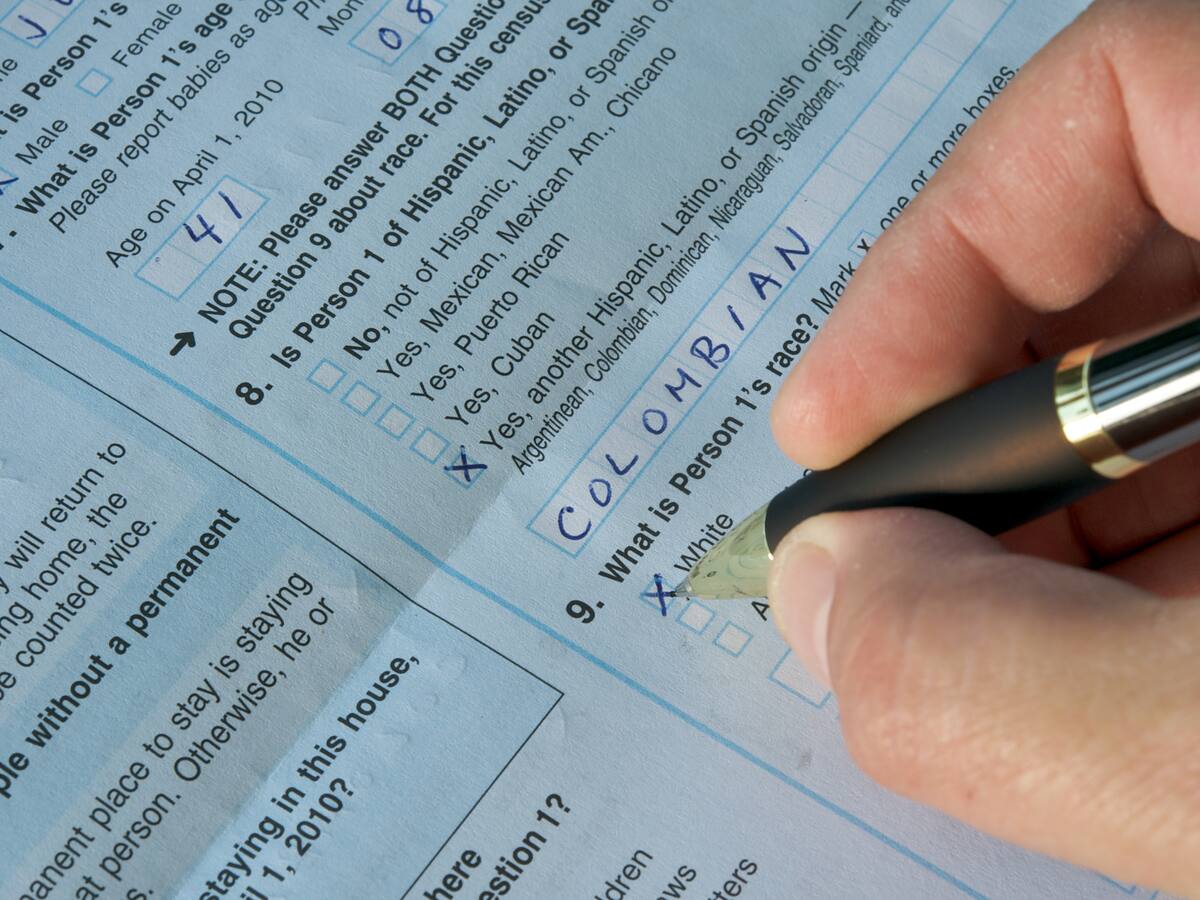 is Person 1's
Male
Female
What is Person 1's age
Please report babies as age
Age on April 1, 2010
41
08
NOTE: Please answer BOTH Question
Question 9 about race. For this census
8. Is Person 1 of Hispanic, Latino, or Spa
No, not of Hispanic, Latino, or Spanish o
Yes, Mexican, Mexican Am., Chicano
Yes, Puerto Rican
Yes, Cuban
X Yes, another Hispanic, Latino, or Spanish origin —
Argentinean, Colombian, Dominican, Nicaraguan, Salvadoran, Spaniard, and
COLOMBIAN
9. What is Person 1's race? Mark X one or more boxes.
X White
y will return to
ing home, the
be counted twice.
ple without a permanent
manent place to stay is staying
at person. Otherwise, he or
staying in this house,
il 1, 2010?
here
estion 1?
ldren
aws
tters